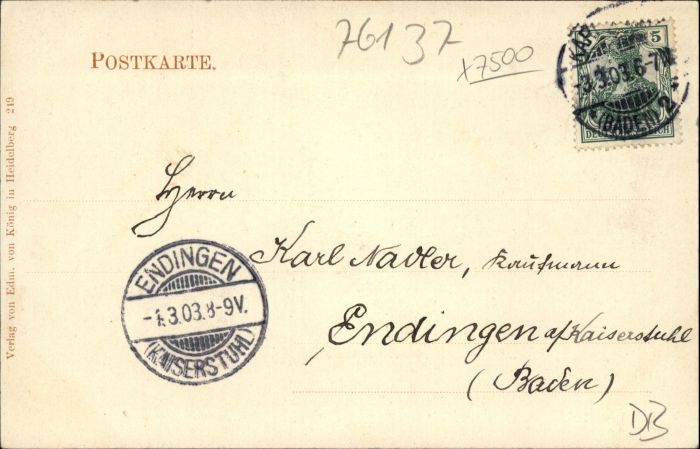 76137
x7500
POSTKARTE.
5
-3.3.03.6-7N
*(BADEN) 2*
Herrn
Karl Nadler, Kaufmann
Endingen a/Kaiserstuhl
(Baden)
ENDINGEN
-4.3.03.8-9V.
(KAISERSTUHL)
Verlag von Edm. von König in Heidelberg 249
DB